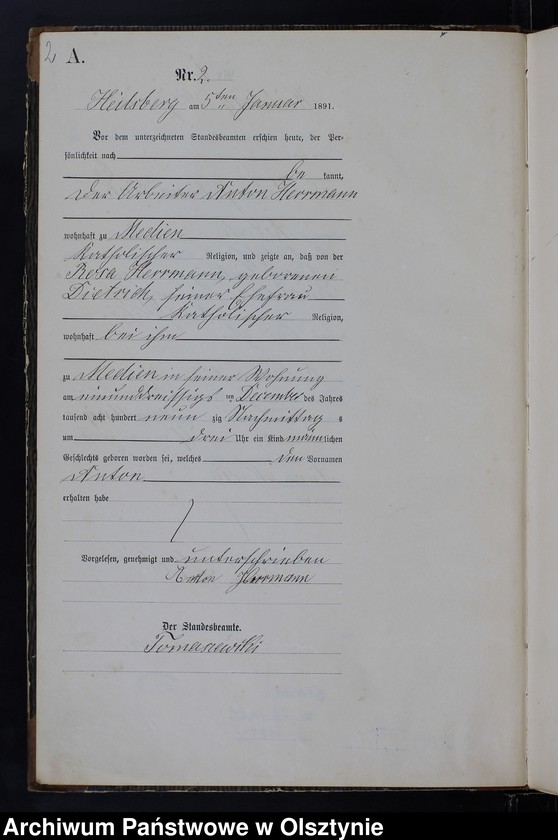 2
A.
Nr. 2.
Heilsberg am 5ten Januar 1891.
Vor dem unterzeichneten Standesbeamten erschien heute, der Per-
sönlichkeit nach
be kannt,
der Arbeiter Anton Herrmann
wohnhaft zu Medien
katholischer Religion, und zeigte an, daß von der
Rosa Herrmann, geborenen
Dietrich, seiner Ehefrau
katholischer Religion,
wohnhaft bei ihm
zu Medien in seiner Wohnung
am einunddreissigs ten December des Jahres
tausend acht hundert neun zig Nachmittag s
um drei Uhr ein Kind männlichen
Geschlechts geboren worden sei, welches den Vornamen
Anton
erhalten habe
Vorgelesen, genehmigt und unterschrieben
Anton Herrmann
Der Standesbeamte.
Tomaszewski
Archiwum Państwowe w Olsztynie